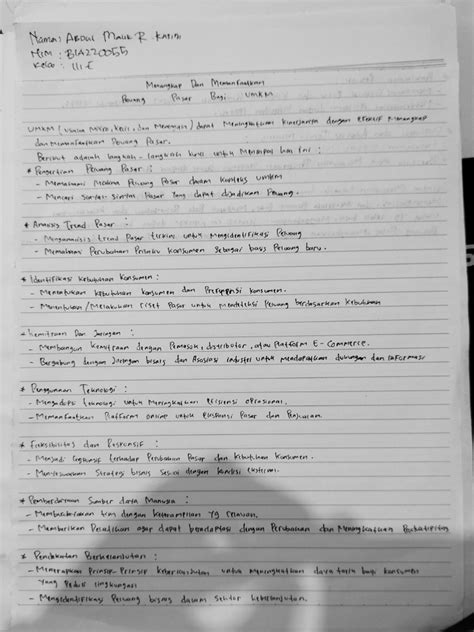 Nama : Abdul Malik R. Katili
NIM : B1A220055
Kelas : III E
Menangkap Dan Memanfaatkan
Peluang Pasar Bagi UMKM
UMKM (Usaha Mikro, Kecil, dan Menengah) dapat Meningkatkan Kinerjanya dengan efektif Menangkap
dan Memanfaatkan Peluang Pasar.
Berikut adalah langkah - langkah kunci untuk Mencapai hal ini :
* Pengertian Peluang Pasar :
- Memahami Makna Peluang Pasar dalam Konteks UMKM
- Mencari Sumber-Sumber Pasar Yang dapat dijadikan Peluang.
* Analisis Trend Pasar :
- Menganalisis trend Pasar terkini untuk Mengidentifikasi Peluang
- Memahami Perubahan Perilaku Konsumen Sebagai basis Peluang baru.
* Identifikasi Kebutuhan Konsumen :
- Menentukan Kebutuhan Konsumen dan Preferensi Konsumen.
- Menentukan / Melakukan riset Pasar untuk Mendeteksi Peluang berdasarkan Kebutuhan
* Kemitraan Dan Jaringan :
- Membangun Kemitraan dengan Pemasok, distributor, atau Platform E-Commerce.
- Bergabung dengan Jaringan bisnis dan Asosiasi industri untuk mendapatkan dukungan dan informasi
* Penggunaan Teknologi :
- Mengadopsi teknologi untuk Meningkatkan Efisiensi operasional.
- Memanfaatkan Platform online untuk ekspansi Pasar dan Penjualan.
* Fleksibilitas dan Responsif :
- Menjadi responsif terhadap Perubahan Pasar dan Kebutuhan Konsumen.
- Menyesuaikan Strategi bisnis Sesuai dengan Kondisi eksternal.
* Pemberdayaan Sumber daya Manusia :
- Memberdayakan tim dengan Keterampilan Yg relevan.
- Memberikan Pelatihan agar dapat beradaptasi dengan Perubahan dan Meningkatkan
* Pendekatan Berkelanjutan :
- Menerapkan Prinsip-Prinsip Keberlanjutan untuk Meningkatkan daya tarik bagi Konsumen
Yang Peduli lingkungan
- Mengidentifikasi Peluang bisnis dalam Sektor Keberlanjutan.